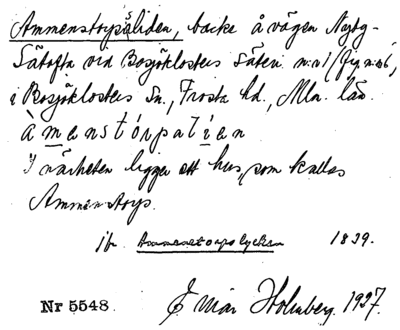 Ammenstorpsliden, backe å vägen Nyby-
Sätofta vid Bosjöklosters Säteri n:o 1
i Bosjöklosters Sn., Frosta hd., Mlm. län.
Àmenstórpalien
I närheten ligger ett hus, som kallas
Ammenstorp.
jfr Ammenstorpslyckan 1839.
Nr 5548. E Mår Holmberg. 1927.